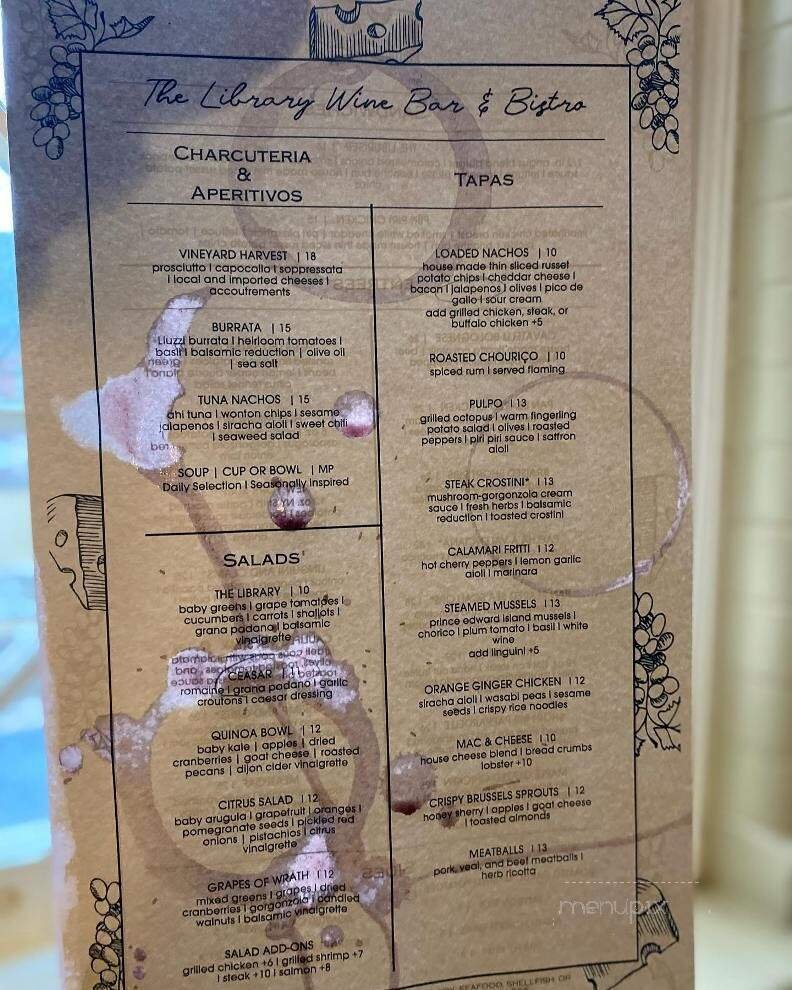 The Library Wine Bar & Bistro
CHARCUTERIA
&
APERITIVOS
VINEYARD HARVEST | 18
prosciutto | capocollo | soppressata
| local and imported cheeses |
accoutrements
BURRATA | 15
Liuzzi burrata | heirloom tomatoes |
basil | balsamic reduction | olive oil
| sea salt
TUNA NACHOS | 15
ahi tuna | wonton chips | sesame
jalapenos | siracha aioli | sweet chili
| seaweed salad
SOUP | CUP OR BOWL | MP
Daily Selection | Seasonally Inspired
SALADS
THE LIBRARY | 10
baby greens | grape tomatoes |
cucumbers | carrots | shallots |
grana padano | balsamic
vinaigrette
CEASAR | 11
romaine | grana padano | garlic
croutons | caesar dressing
QUINOA BOWL | 12
baby kale | apples | dried
cranberries | goat cheese | roasted
pecans | dijon cider vinaigrette
CITRUS SALAD | 12
baby arugula | grapefruit | oranges |
pomegranate seeds | pickled red
onions | pistachios | citrus
vinaigrette
GRAPES OF WRATH | 12
mixed greens | grapes | dried
cranberries | gorgonzola | candied
walnuts | balsamic vinaigrette
SALAD ADD-ONS
grilled chicken +6 | grilled shrimp +7
| steak +10 | salmon +8
TAPAS
LOADED NACHOS | 10
house made thin sliced russet
potato chips | cheddar cheese |
bacon | jalapenos | olives | pico de
gallo | sour cream
add grilled chicken, steak, or
buffalo chicken +5
ROASTED CHOURIÇO | 10
spiced rum | served flaming
PULPO | 13
grilled octopus | warm fingerling
potato salad | olives | roasted
peppers | piri piri sauce | saffron
aioli
STEAK CROSTINI* | 13
mushroom-gorgonzola cream
sauce | fresh herbs | balsamic
reduction | toasted crostini
CALAMARI FRITTI | 12
hot cherry peppers | lemon garlic
aioli | marinara
STEAMED MUSSELS | 13
prince edward island mussels |
chorico | plum tomato | basil | white
wine
add linguini +5
ORANGE GINGER CHICKEN | 12
siracha aioli | wasabi peas | sesame
seeds | crispy rice noodles
MAC & CHEESE | 10
house cheese blend | bread crumbs
lobster +10
CRISPY BRUSSELS SPROUTS | 12
honey sherry | apples | goat cheese
| toasted almonds
MEATBALLS | 13
pork, veal, and beef meatballs |
herb ricotta
menupix
SEAFOOD, SHELLFISH, OR